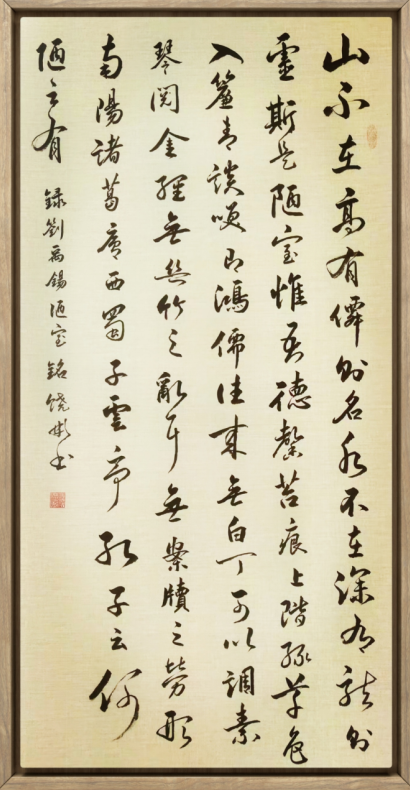 山不在高有僊則名水不在深有龍則
靈斯是陋室惟吾德馨苔痕上階綠草色
入簾青談咲即鴻儒往來無白丁可以調素
琴閱金經無絲竹之亂耳無案牘之勞形
南陽諸葛廬西蜀子雲亭孔子云何
陋之有
錄劉禹錫陋室銘饒彬書